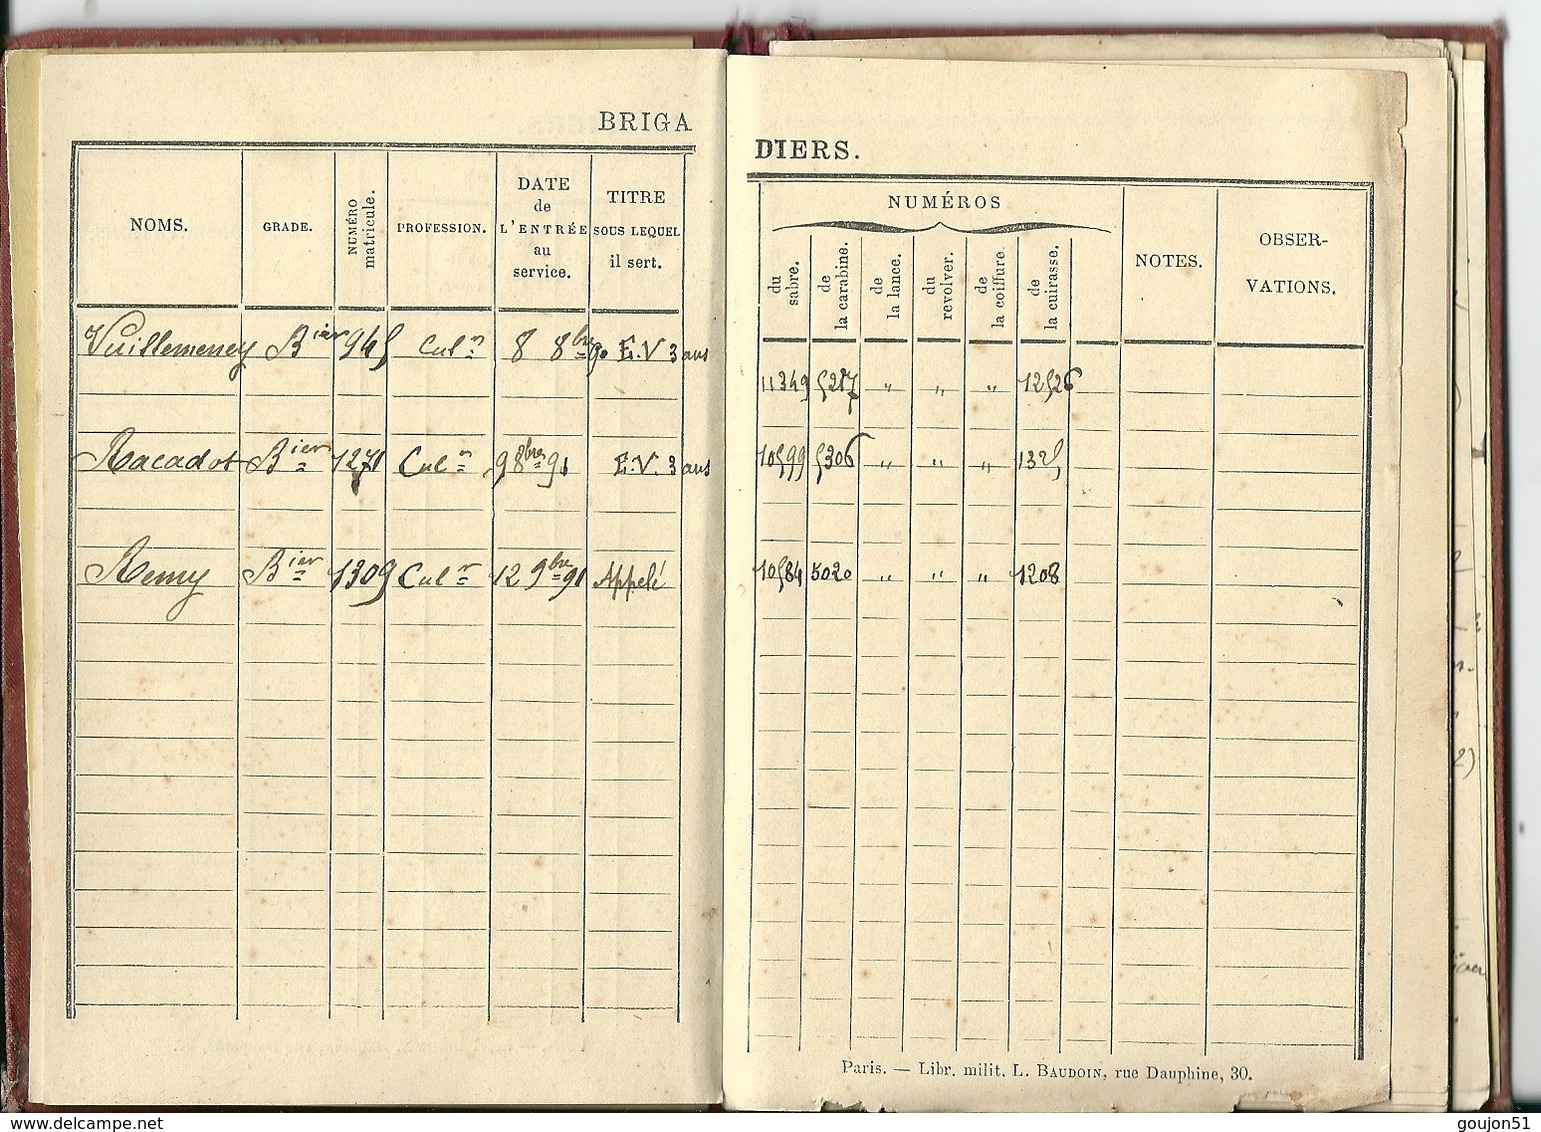 BRIGADIERS.
NOMS. GRADE. NUMÉRO matricule. PROFESSION. DATE de L'ENTRÉE au service. TITRE SOUS LEQUEL il sert. NUMÉROS du sabre. de la carabine. de la lance. du revolver. de la coiffure. de la cuirasse. NOTES. OBSER-VATIONS.
Vuillemeney Bier 945 Culr 8 8bre 90 E.V 3 ans 11349 5217 " " " 12526
Racadot Bier 1271 Culr 9 8bre 91 E.V. 3 ans 10599 5306 " " " 1325
Remy Bier 1309 Culr 12 9bre 91 Appelé 10584 5020 " " " 1208
Paris. — Libr. milit. L. BAUDOIN, rue Dauphine, 30.
www.delcampe.net
goujon51